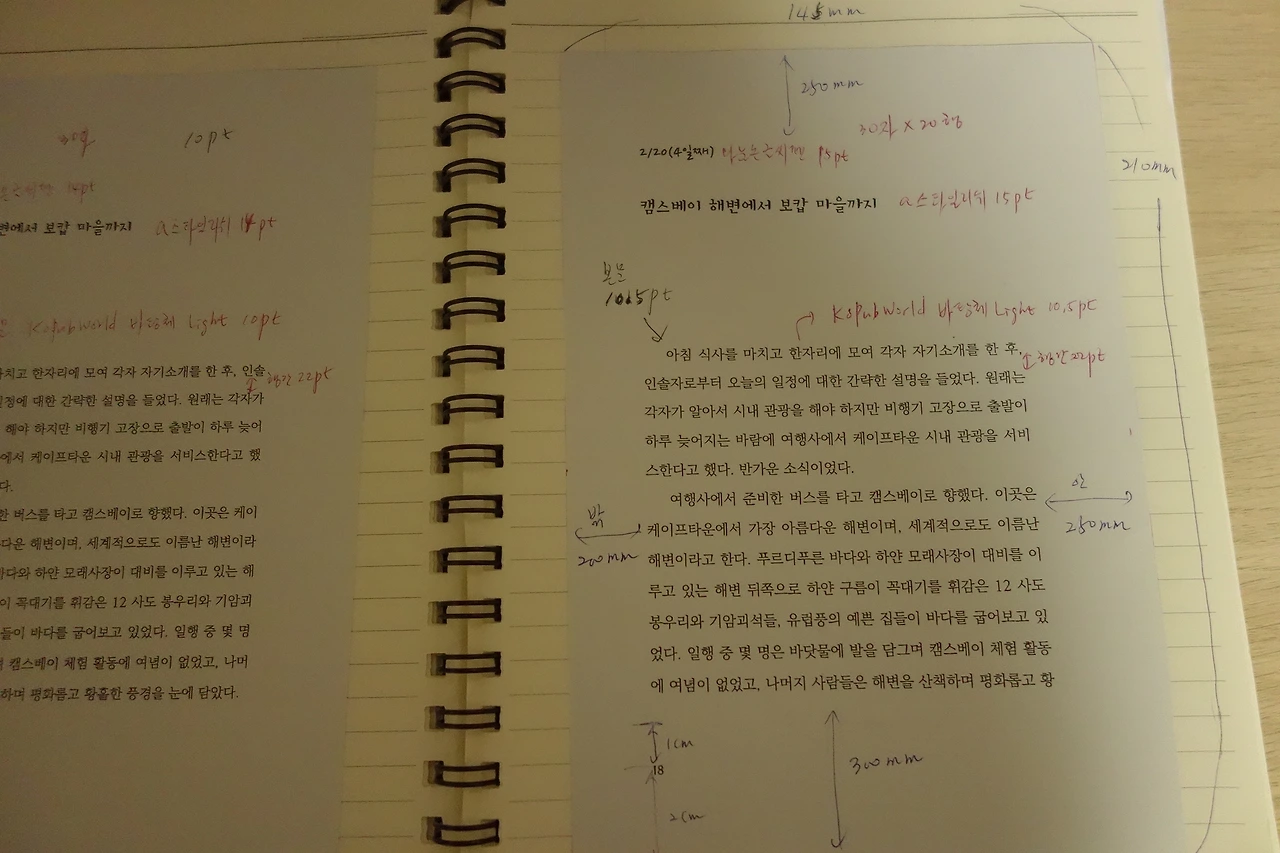 10pt
14pt
변에서 보캅 마을까지 a스타일리쉬 14pt
KopubWorld 바탕체 Light 10pt
마치고 한자리에 모여 각자 자기소개를 한 후, 인솔
행간 22pt
일정에 대한 간략한 설명을 들었다. 원래는 각자가
해야 하지만 비행기 고장으로 출발이 하루 늦어
에서 케이프타운 시내 관광을 서비스한다고 했
다.
한 버스를 타고 캠스베이로 향했다. 이곳은 케이
다운 해변이며, 세계적으로도 이름난 해변이라
바다와 하얀 모래사장이 대비를 이루고 있는 해
이 꼭대기를 휘감은 12 사도 봉우리와 기암괴
들이 바다를 굽어보고 있었다. 일행 중 몇 명
캠스베이 체험 활동에 여념이 없었고, 나머
하며 평화롭고 황홀한 풍경을 눈에 담았다.
145mm
250mm
30자 × 20행
2/20(4일째) 나눔손글씨펜 15pt
210mm
캠스베이 해변에서 보캅 마을까지 a스타일리쉬 15pt
본문
10.5pt
KopubWorld 바탕체 Light 10.5pt
아침 식사를 마치고 한자리에 모여 각자 자기소개를 한 후,
행간 22pt
인솔자로부터 오늘의 일정에 대한 간략한 설명을 들었다. 원래는
각자가 알아서 시내 관광을 해야 하지만 비행기 고장으로 출발이
하루 늦어지는 바람에 여행사에서 케이프타운 시내 관광을 서비
스한다고 했다. 반가운 소식이었다.
여행사에서 준비한 버스를 타고 캠스베이로 향했다. 이곳은
안
250mm
밖
200mm
케이프타운에서 가장 아름다운 해변이며, 세계적으로도 이름난
해변이라고 한다. 푸르디푸른 바다와 하얀 모래사장이 대비를 이
루고 있는 해변 뒤쪽으로 하얀 구름이 꼭대기를 휘감은 12 사도
봉우리와 기암괴석들, 유럽풍의 예쁜 집들이 바다를 굽어보고 있
었다. 일행 중 몇 명은 바닷물에 발을 담그며 캠스베이 체험 활동
에 여념이 없었고, 나머지 사람들은 해변을 산책하며 평화롭고 황
1cm
18
2cm
300mm